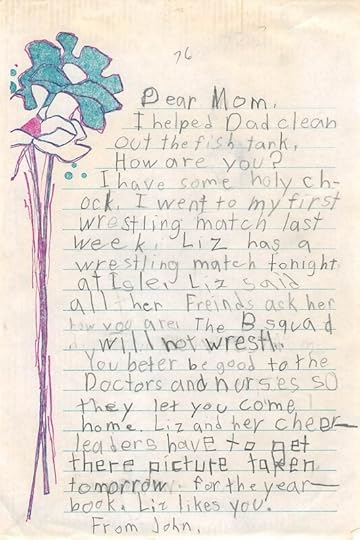 76
Dear Mom,
I helped Dad clean
out the fish tank.
How are you?
I have some holy ch-
ock. I went to my first
wrestling match last
week. Liz has a
wrestling match tonight
at Isle. Liz said
all her Freinds ask her
how you are. The B squad
will not wrestl.
You beter be good to the
Doctors and nurses so
they let you come
home. Liz and her cheer-
leaders have to get
there picture taken
tomorrow. for the year-
book. Liz likes you.
From John,